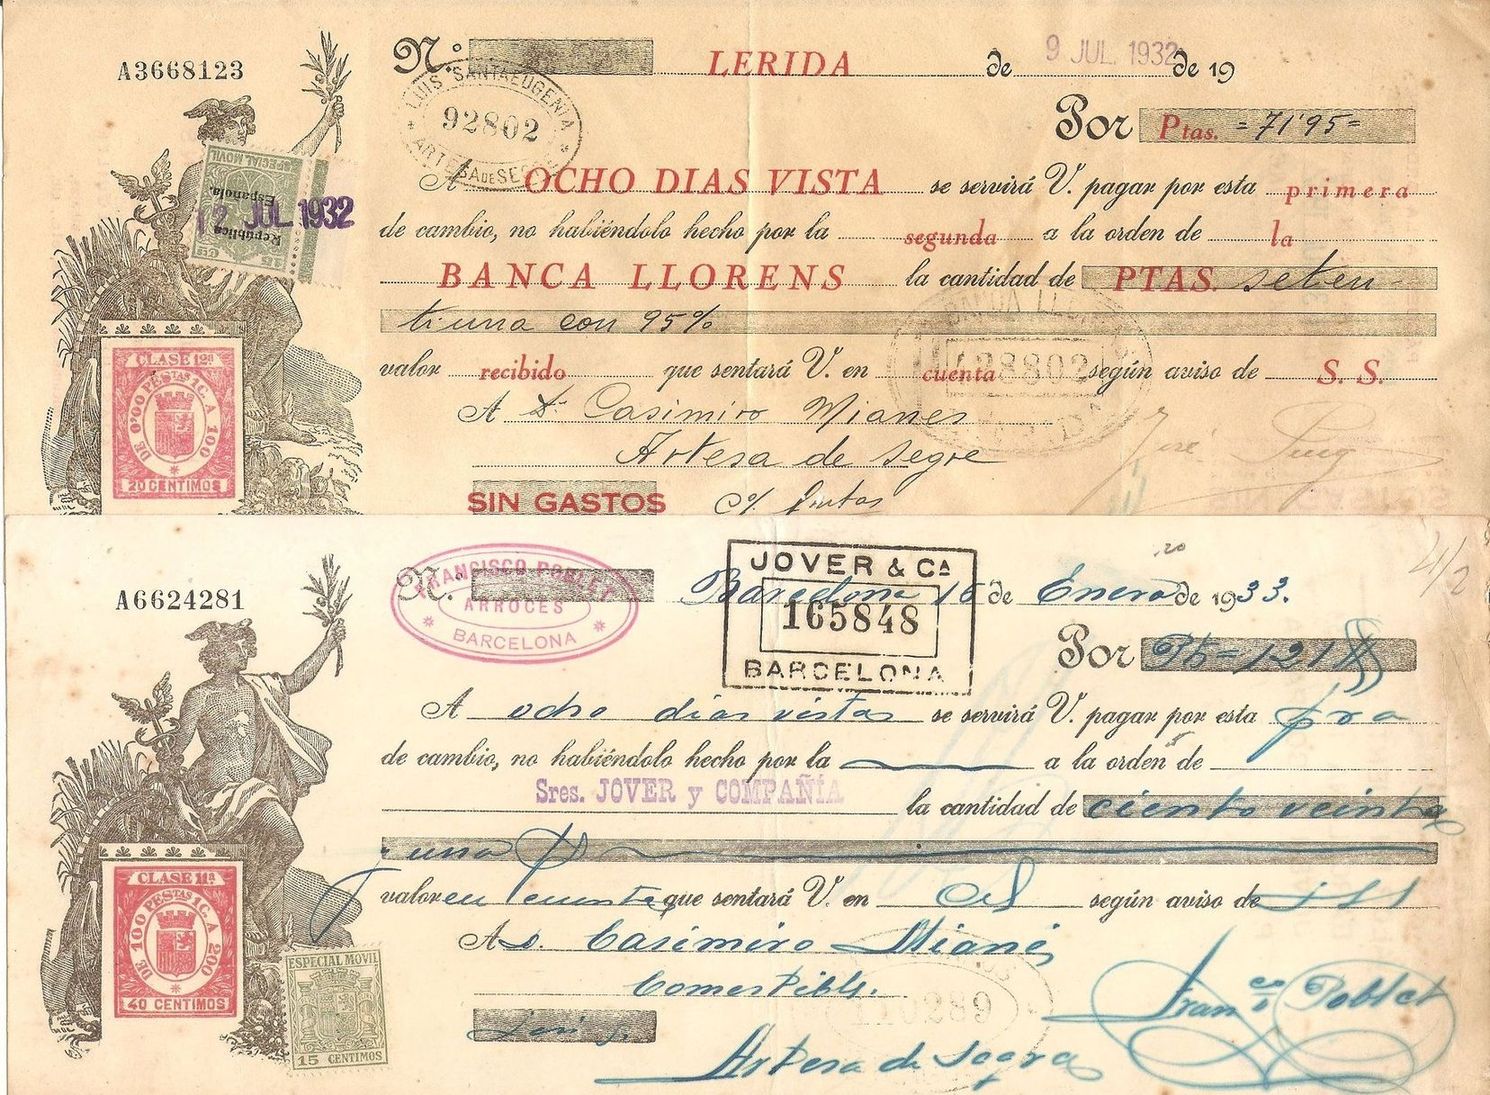 A3668123
N.º LERIDA de 9 JUL. 1932 de 19
LUIS SANTAEUGENIA
92802
ARTESA DE SEGRE
Por Ptas. =71'95=
A OCHO DIAS VISTA se servirá V. pagar por esta primera
de cambio, no habiéndolo hecho por la segunda a la orden de la
BANCA LLORENS la cantidad de PTAS. seten-
tiuna con 95%
valor recibido que sentará V. en cuenta según aviso de S. S.
A D. Casimiro Mianes
Artesa de Segre
SIN GASTOS
José Puig
ESPECIAL MOVIL
República
Española.
15 CTS
12 JUL 1932
CLASE 12ª
DE 0'00 PESTAS 1C. A 100
20 CENTIMOS
BANCA LLORENS
A6624281
N.º Barcelona 16 de Enero de 1933.
FRANCISCO POBLET
ARROCES
BARCELONA
JOVER & CA
165848
BARCELONA
Por Pts = 121
A ocho dias vista se servirá V. pagar por esta pra
de cambio, no habiéndolo hecho por la a la orden de
Sres. JOVER y COMPAÑÍA la cantidad de ciento veinte
y una
valor en cuenta que sentará V. en según aviso de
A D. Casimiro Mianés
Comestibls.
Artesa de Segre
Franco Poblet
110289
CLASE 11ª
DE 100 PESTAS 1C. A 200
40 CENTIMOS
ESPECIAL MOVIL
15 CENTIMOS